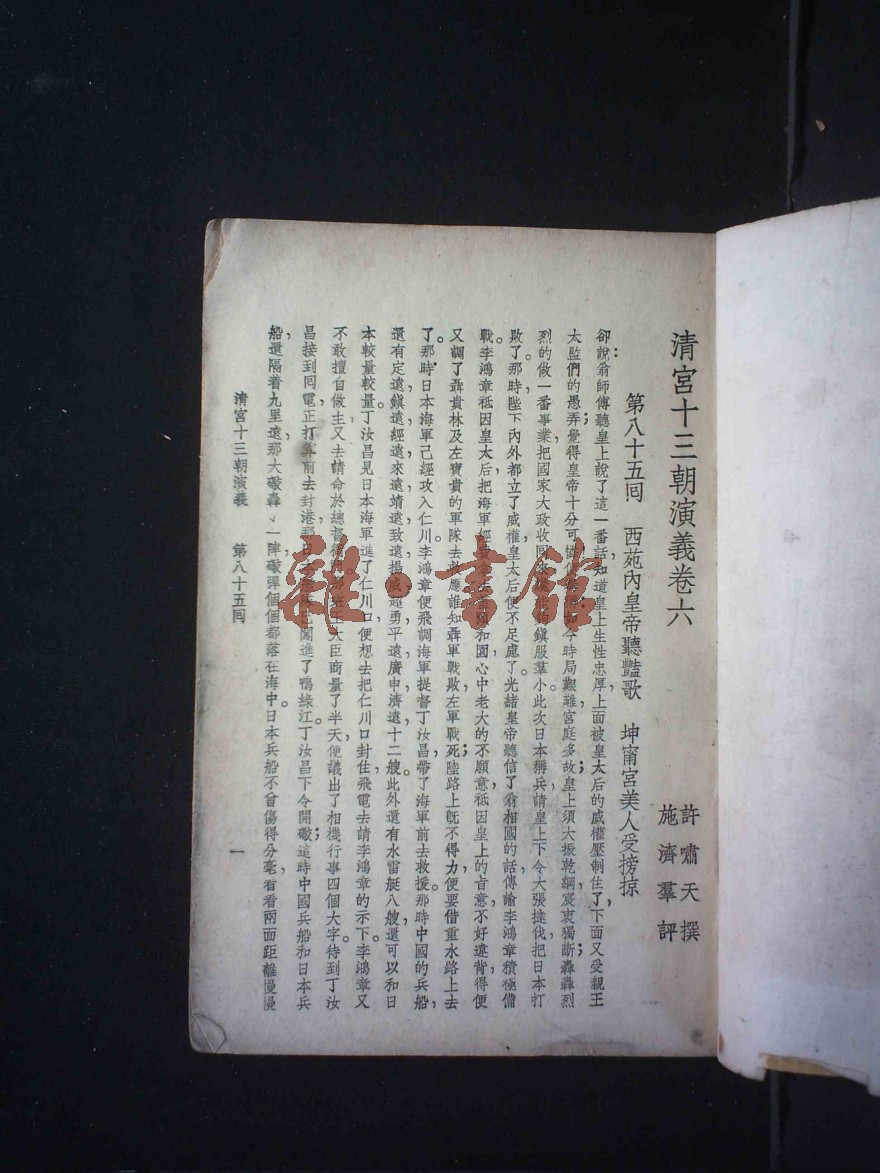 清宮十三朝演義卷六
許嘯天撰
施濟羣評
第八十五囘 西苑內皇帝聽豔歌 坤甯宮美人受搒掠
卻說翁師傅聽皇上說了這一番話知道皇上生性忠厚上面被皇太后的威權壓制住了下面又受親王
太監們的愚弄覺得皇帝十分可 今時局艱難宮庭多故皇上須大振乾綱宸衷獨斷轟轟烈
烈的做一番事業把國家大政收囘 鎮服羣小此次日本稱兵請皇上下令大張撻伐把日本打
敗了那時陛下內外都立了威權皇太后便不足慮了光緒皇帝聽信了翁相國的話傳諭李鴻章積極備
戰李鴻章祗因皇太后把海軍經 和園心中老大的不願意祗因皇上的旨意不好違背得便
又調了聶貴林及左寶貴的軍隊去救應誰知聶軍戰敗左軍戰死陸路上旣不得力便要借重水路上去
了那時日本海軍已經攻入仁川李鴻章便飛調海軍提督丁汝昌帶了海軍前去救援那時中國的兵船
還有定遠鎭遠經遠來遠靖遠致遠揚威超勇平遠廣甲濟遠十二艘此外還有水雷艇八艘還可以和日
本較量較量丁汝昌見日本海軍進了仁川口便想去把仁川口封住飛電去請李鴻章的示下李鴻章又
不敢擅自做主又去請命於總 大臣商量了半天便議出了相機行事四個大字待到丁汝
昌接到囘電正打算前去封港那 闖進了鴨綠江丁汝昌下令開礮這時中國兵船和日本兵
船還隔着九里遠那大礮轟 一陣礮彈個個都落在海中日本兵船不曾傷得分毫看看兩面距離慢慢
清宮十三朝演義 第八十五囘 一
雜·書館